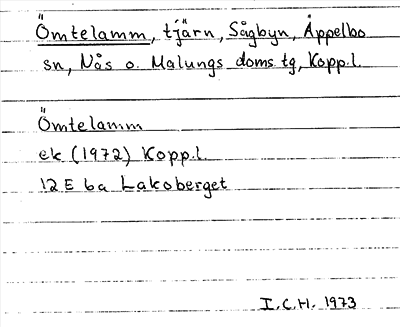 Ömtelamm, tjärn, Sågbyn, Äppelbo
sn, Nås o. Malungs doms. tg, Kopp.l.
Ömtelamm
ek (1972) Kopp.l.
12 E 6a Lakoberget
I.C.H. 1973